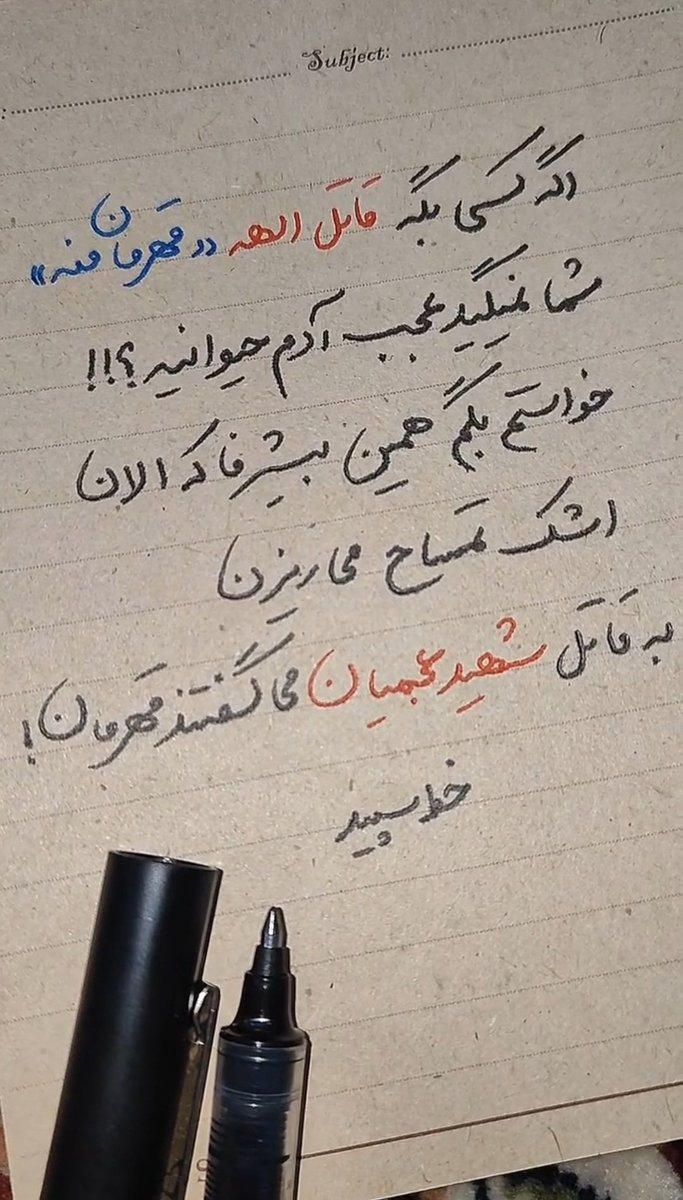 Subject:
اگه کسی بگه قاتل الهه «قهرمان منه»
شما نمیگید عجب آدم حیوانیه؟!!
خواستم بگم همین بیشرفا که الان
اشک تمساح می‌ریزن
به قاتل شهید عجمیان می گفتند قهرمان!
خط سپید